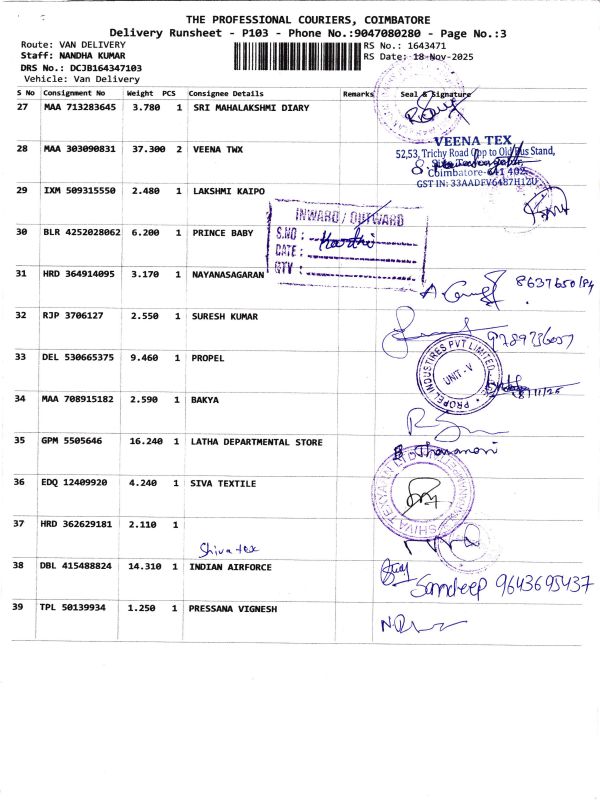 THE PROFESSIONAL COURIERS, COIMBATORE
Delivery Runsheet - P103 - Phone No.:9047080280 - Page No.:3
Route: VAN DELIVERY
Staff: NANDHA KUMAR
DRS No.: DCJB164347103
Vehicle: Van Delivery
RS No.: 1643471
RS Date: 18-Nov-2025
S No Consignment No Weight PCS Consignee Details Remarks Seal & Signature
27 MAA 713283645 3.780 1 SRI MAHALAKSHMI DIARY
28 MAA 303090831 37.300 2 VEENA TWX
VEENA TEX
52,53, Trichy Road Opp to Old Bus Stand,
Coimbatore-641 402
GST IN: 33AADFV6487H1ZU
29 IXM 509315550 2.480 1 LAKSHMI KAIPO
30 BLR 4252028062 6.200 1 PRINCE BABY
INWARD / OUTWARD
S.NO :
DATE :
QTY :
31 HRD 364914095 3.170 1 NAYANASAGARAN
32 RJP 3706127 2.550 1 SURESH KUMAR
33 DEL 530665375 9.460 1 PROPEL
PROPEL INDUSTIRES PVT LIMITED
UNIT - V
34 MAA 708915182 2.590 1 BAKYA
35 GPM 5505646 16.240 1 LATHA DEPARTMENTAL STORE
36 EDQ 12409920 4.240 1 SIVA TEXTILE
37 HRD 362629181 2.110 1
Shiva tex
38 DBL 415488824 14.310 1 INDIAN AIRFORCE
Sandeep 9643695437
39 TPL 50139934 1.250 1 PRESSANA VIGNESH